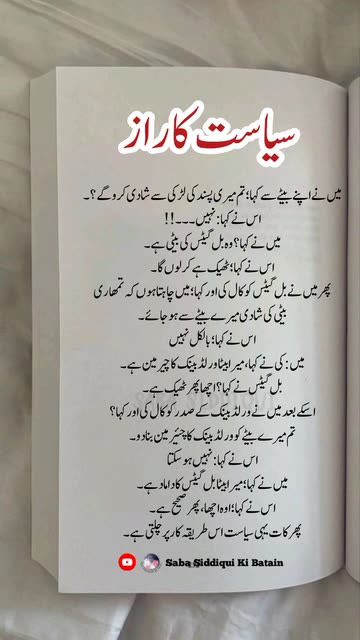 سیاست کا راز
میں نے اپنے بیٹے سے کہا؛ تم میری پسند کی لڑکی سے شادی کرو گے؟۔
اس نے کہا: نہیں۔۔۔!!
میں نے کہا؟ وہ بل گیٹس کی بیٹی ہے۔
اس نے کہا؛ ٹھیک ہے کرلوں گا۔
پھر میں نے بل گیٹس کو کال کی اور کہا؛ میں چاہتا ہوں کہ تمھاری
بیٹی کی شادی میرے بیٹے سے ہو جائے۔
اس نے کہا؛ بالکل نہیں
میں: کی نے کہا، میرا بیٹا ورلڈ بینک کا چیرمین ہے۔
بل گیٹس نے کہا؟ اچھا پھر ٹھیک ہے۔
اسکے بعد میں نے ورلڈ بینک کے صدر کو کال کی اور کہا؟
تم میرے بیٹے کو ورلڈ بینک کا چیئرمین بنادو۔
اس نے کہا: نہیں ہو سکتا
میں نے کہا؛ میرا بیٹا بل گیٹس کا داماد ہے۔
اس نے کہا؛ اوہ اچھا، پھر صحیح ہے۔
پھر کات یہی سیاست اس طریقہ کار پر چلتی ہے۔
Saba Siddiqui Ki Batain